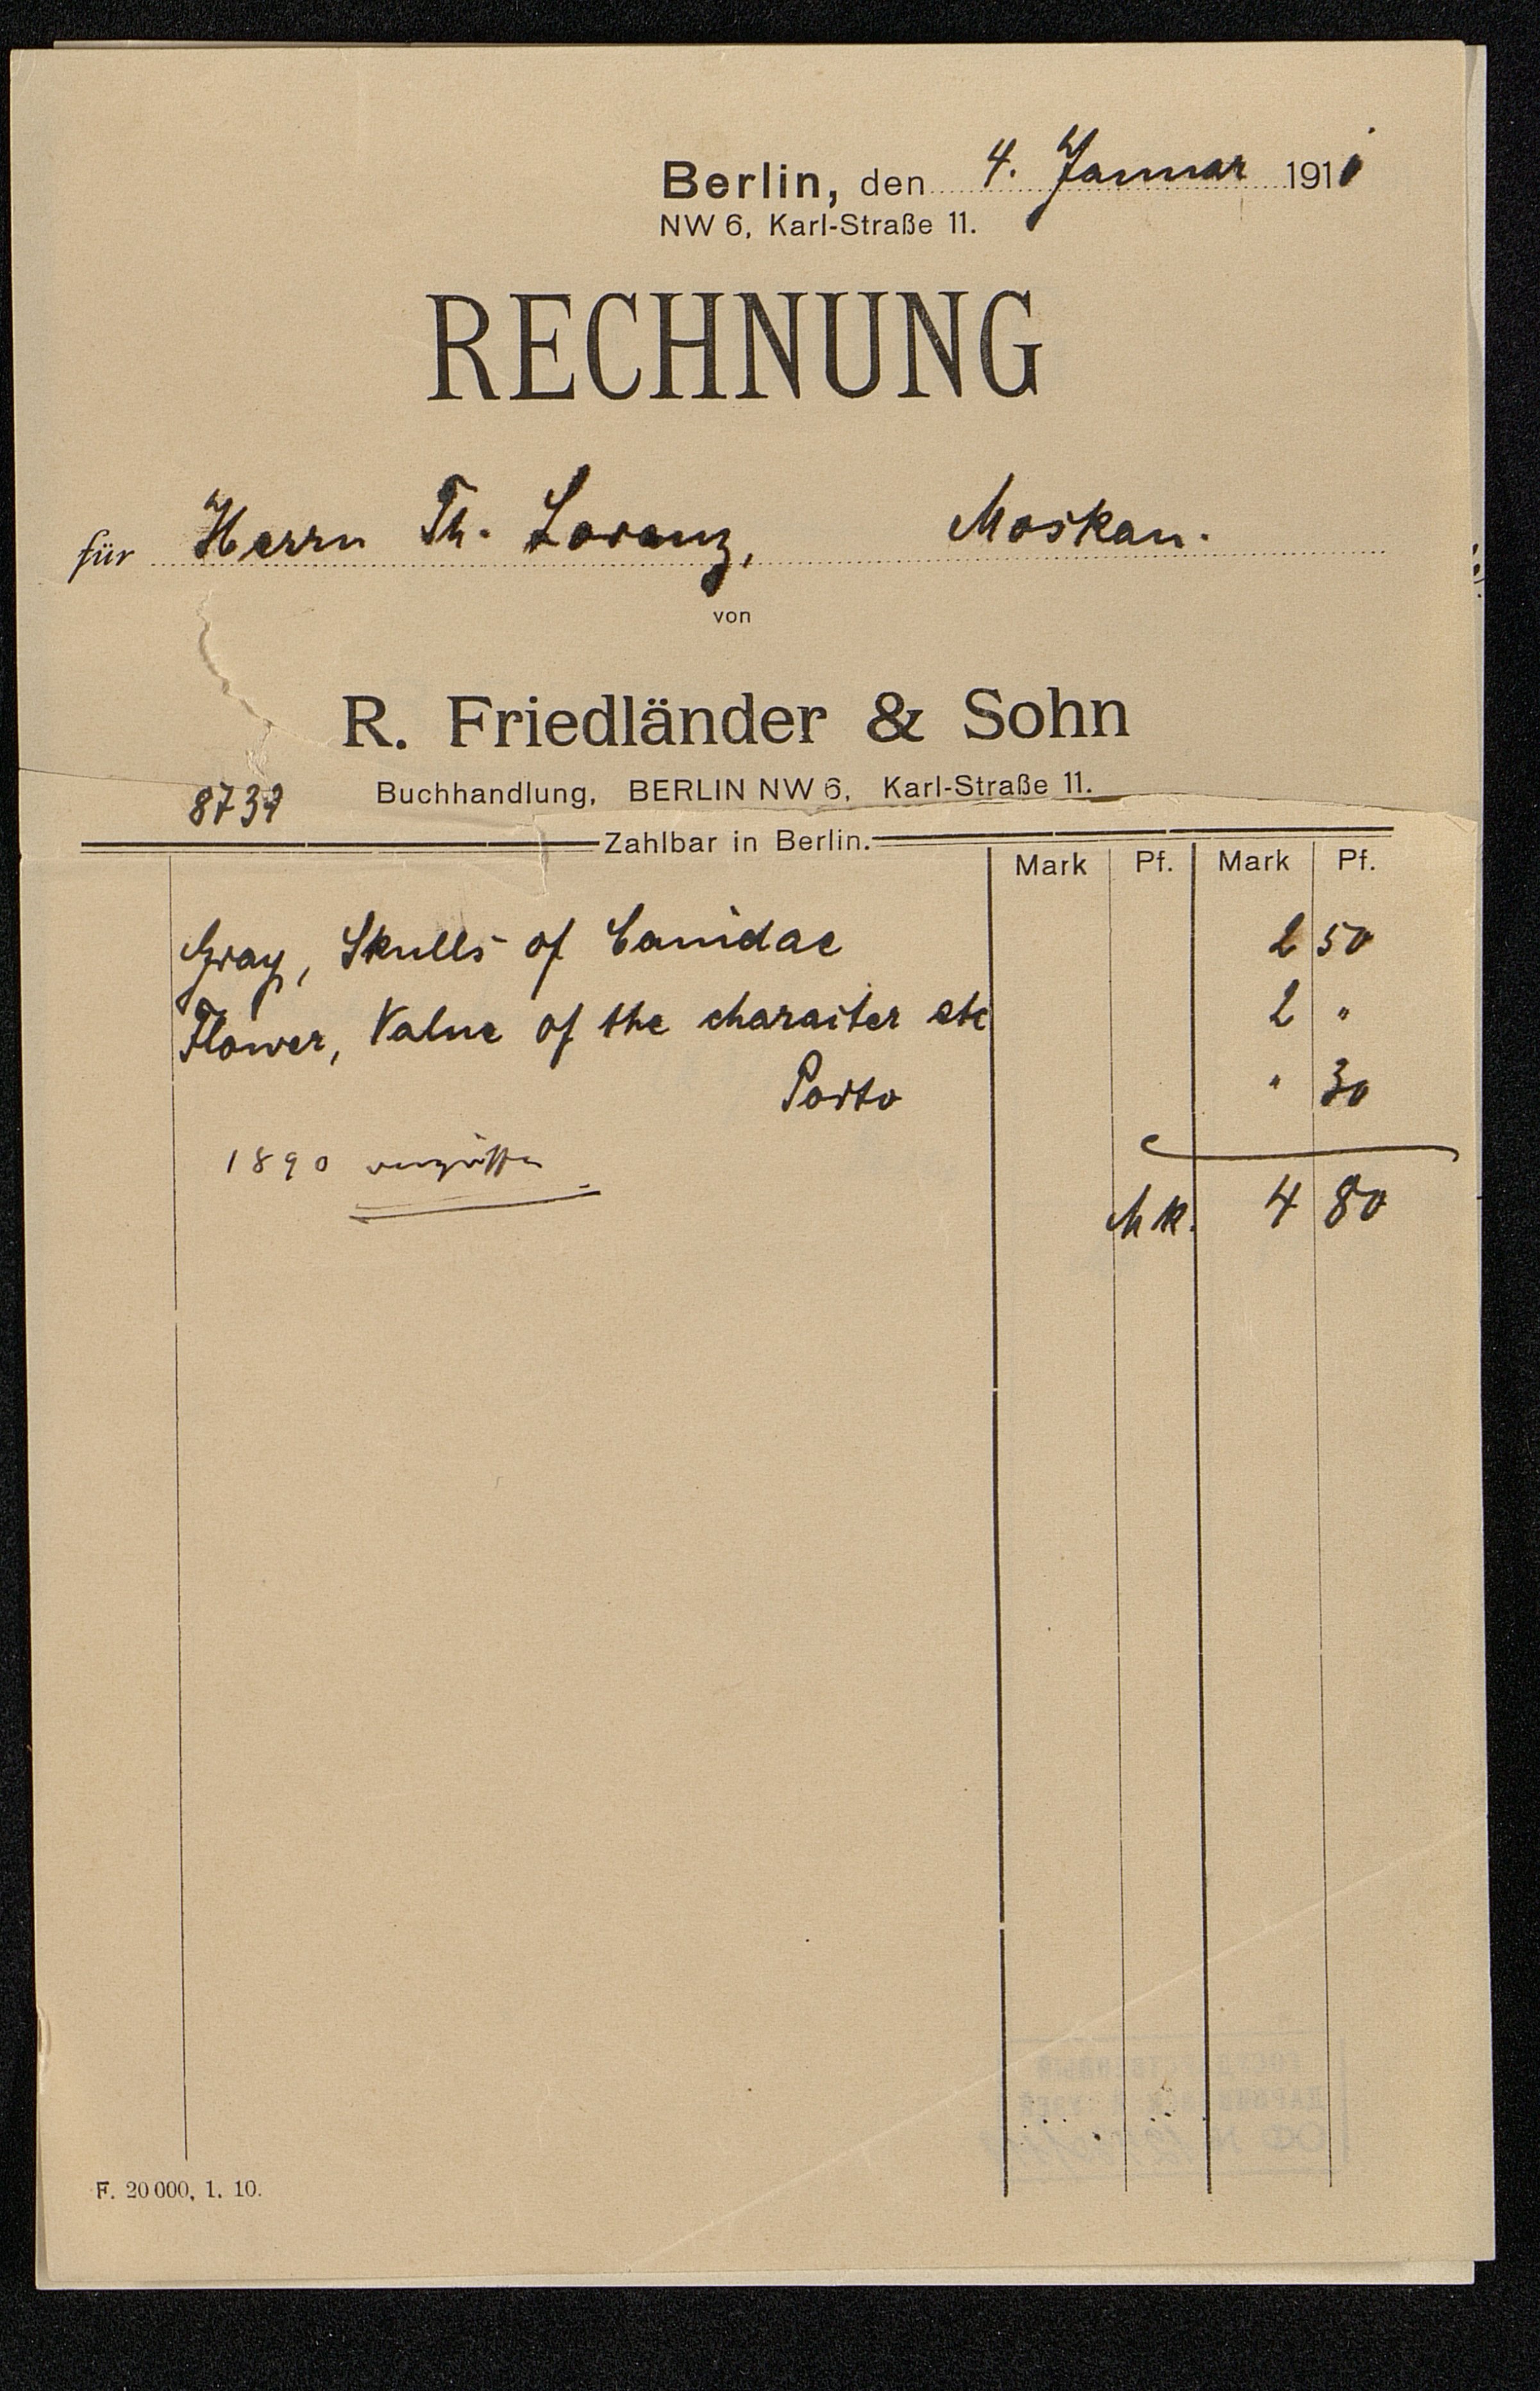 Berlin, den 4. Januar 191
NW 6, Karl-Straße 11.
RECHNUNG
für Herrn Th. Lorenz, Moskau.
von
R. Friedländer & Sohn
Buchhandlung, BERLIN NW 6, Karl-Straße 11.
Zahlbar in Berlin.
Mark Pf. Mark Pf.
Gray, Skulls of Canidae 2 50
Flower, Value of the character etc 2 "
Porto " 30
1890
Mk. 4 80
F. 20 000, 1. 10.